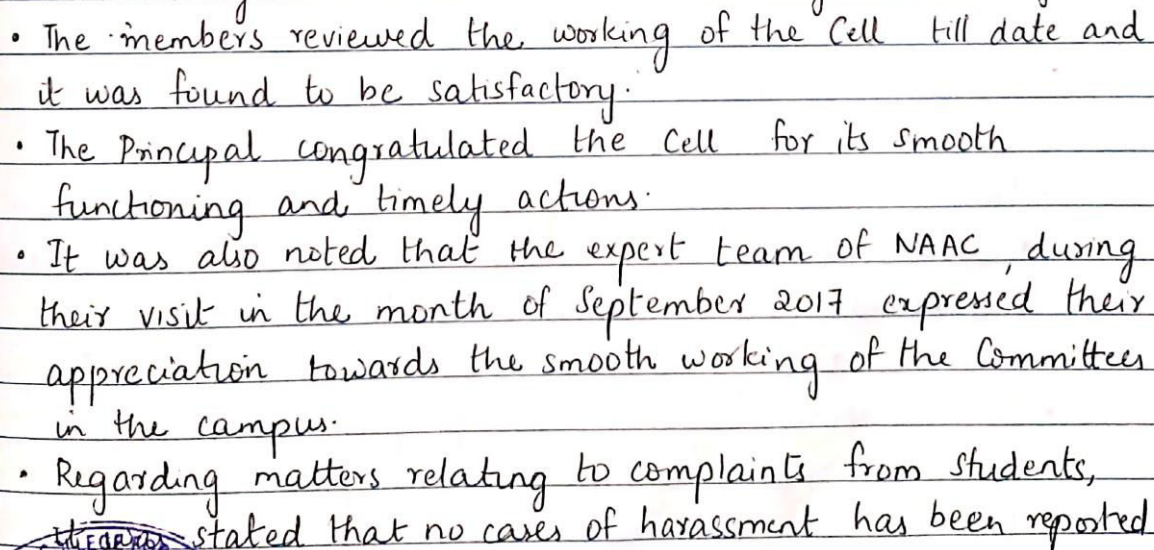 • The members reviewed the working of the Cell till date and
it was found to be satisfactory.
• The Principal congratulated the Cell for its smooth
functioning and timely actions.
• It was also noted that the expert team of NAAC, during
their visit in the month of September 2017 expressed their
appreciation towards the smooth working of the Committees
in the campus.
• Regarding matters relating to complaints from students,
it stated that no cases of harassment has been reported